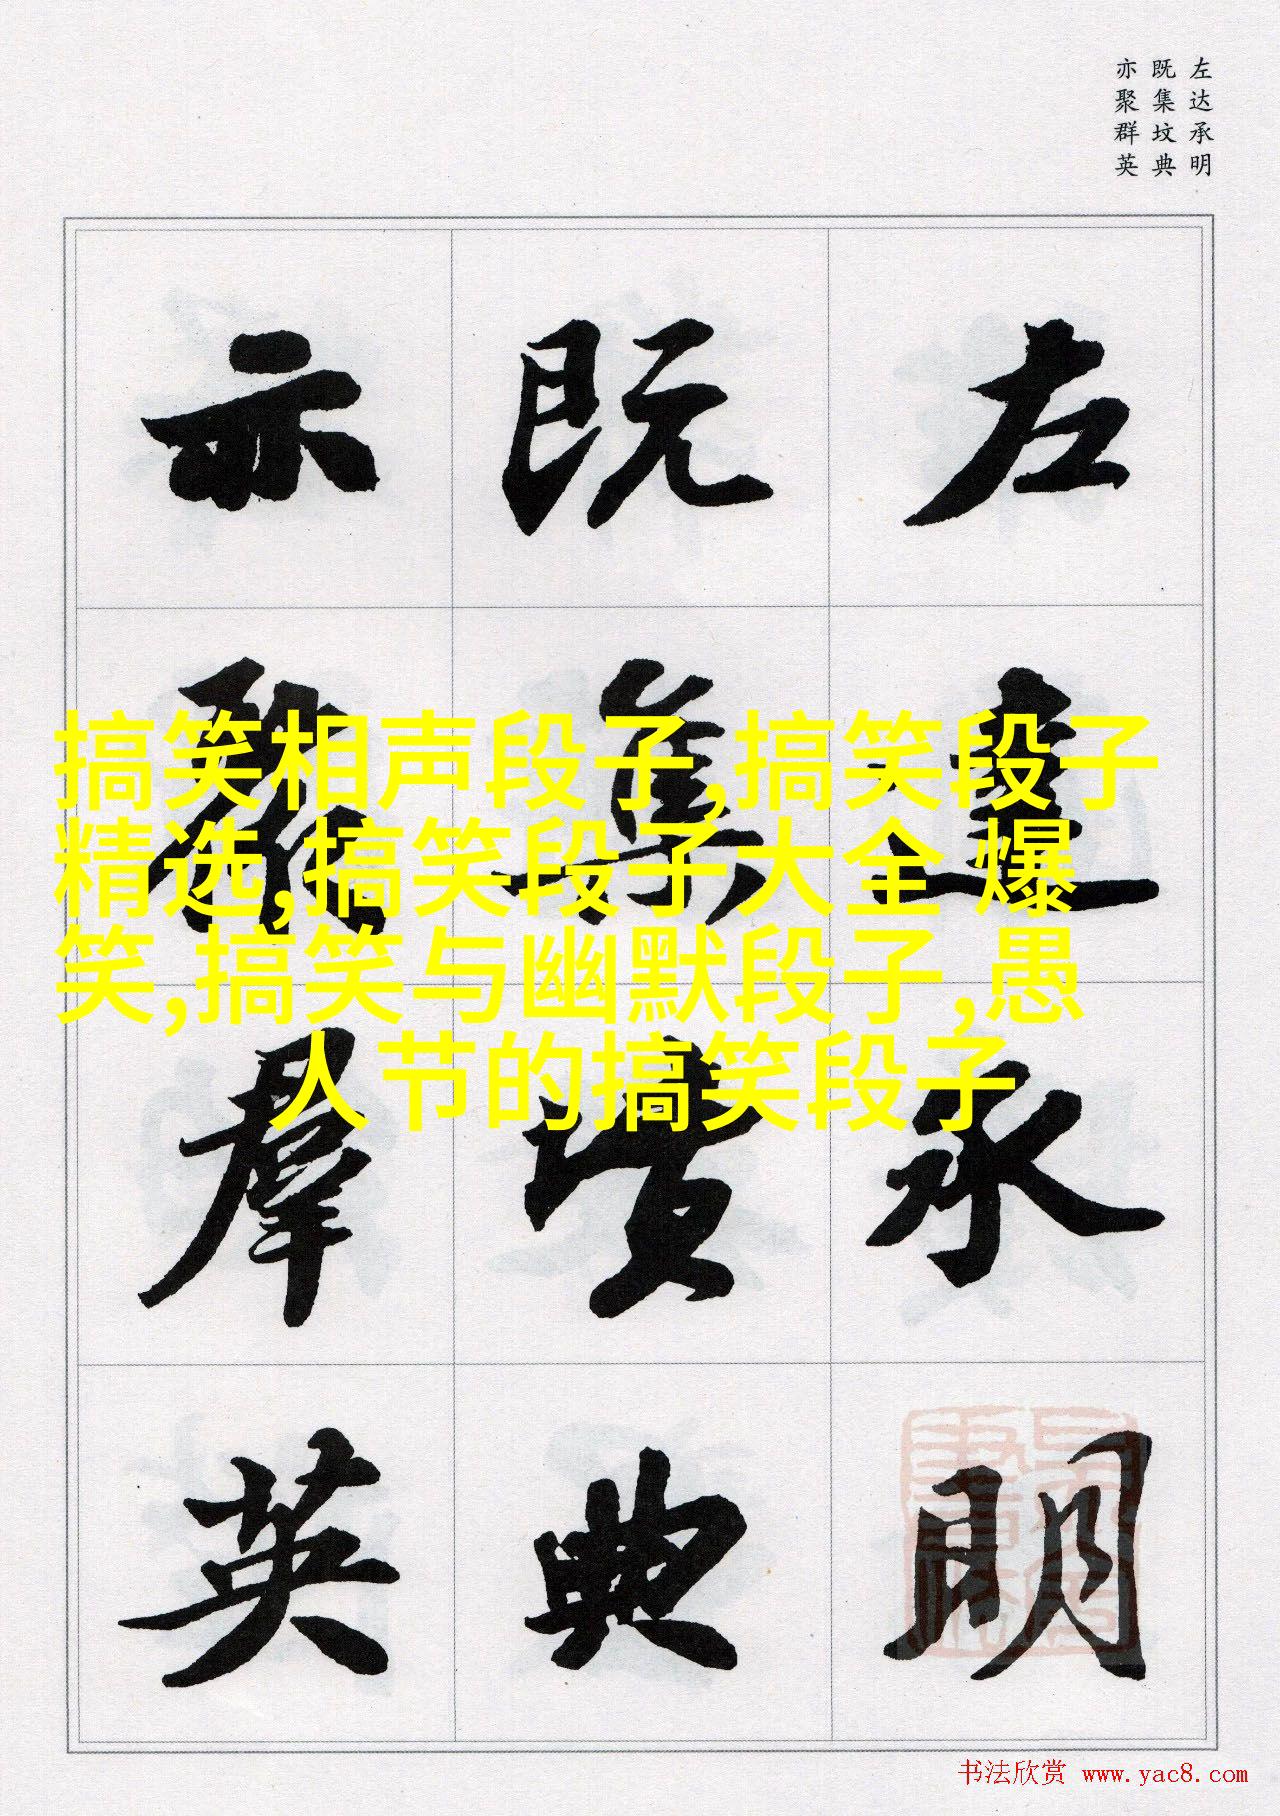 左达承明
既集坟典
亦聚群英
左達承明
既集墳典
亦聚群英
搞笑相声段子,搞笑段子
精选,搞笑段子大全 爆
笑,搞笑与幽默段子,愚
人节的搞笑段子
书法欣赏 www.yac8.com